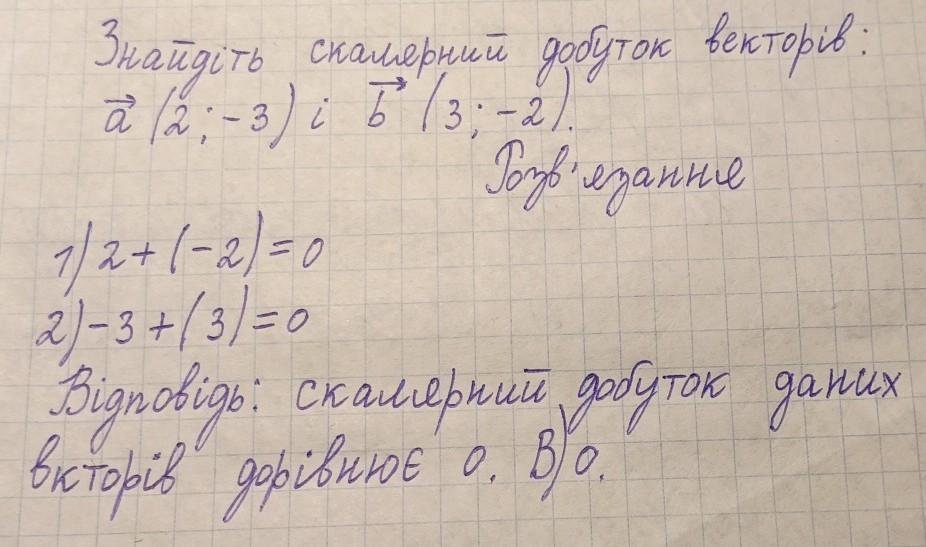 Знайдіть скалярний добуток векторів:
a⃗ (2; -3) і b⃗ (3; -2).
Розв'язання
1) 2 + (-2) = 0
2) -3 + (3) = 0
Відповідь: скалярний добуток даних
вкторів дорівнює 0. В) 0.